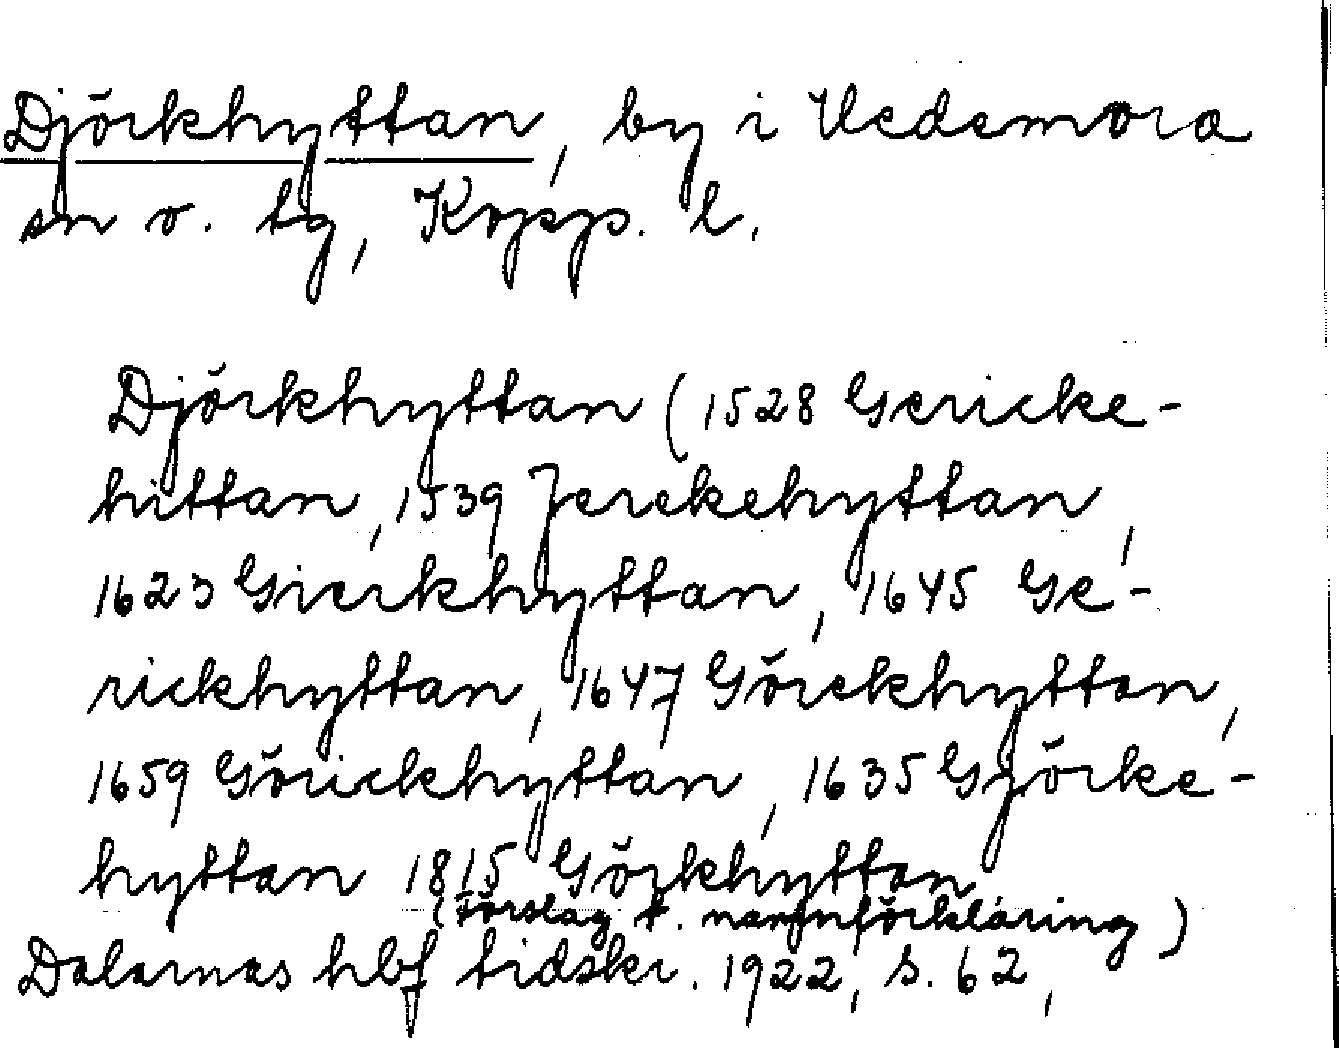 Djörkhyttan, by i Hedemora
sn o. tg, Kopp. l.
Djörkhyttan (1528 Gericke-
hittan, 1539 Jerekehyttan,
1623 Gierkhyttan, 1645 Ge-
rickhyttan, 1647 Görekhyttan,
1659 Görickhyttan, 1635 Gjörke-
hyttan 1815 Görkhyttan
(Förslag t. namnförklaring)
Dalarnas hbf tidskr. 1922, s. 62,